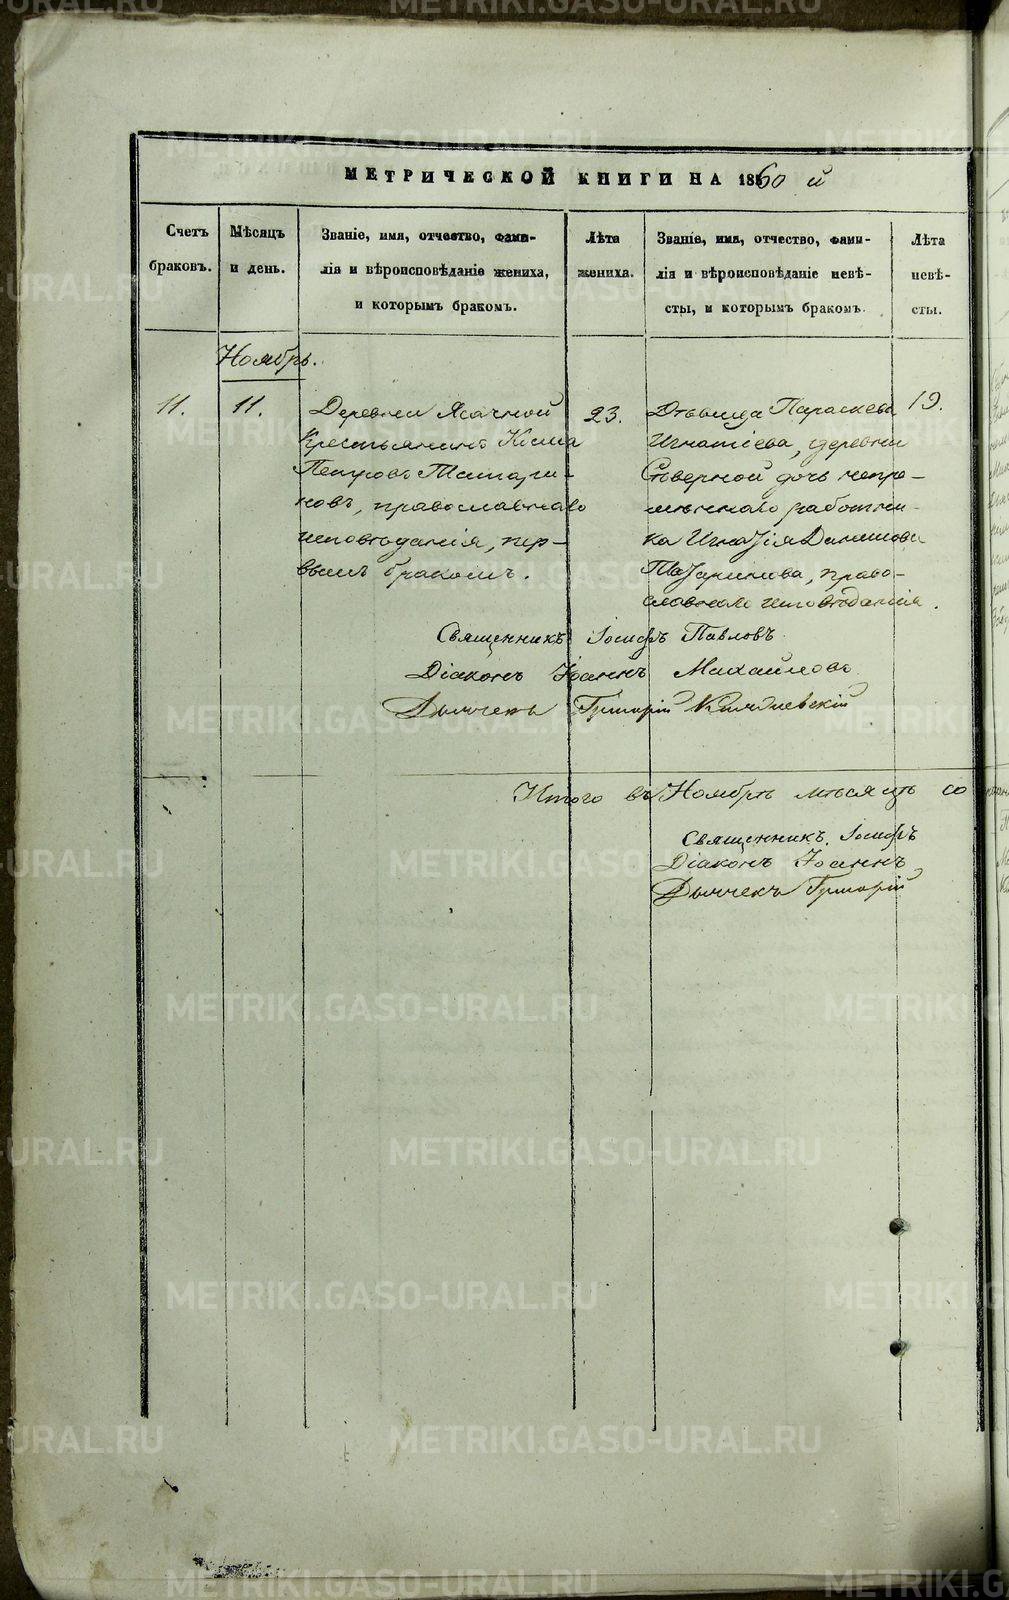 МЕТРИЧЕСКОЙ КНИГИ НА 1860 й
Счетъ браковъ.
Мѣсяцъ и день.
Званіе, имя, отчество, фами-
лія и вѣроисповѣданіе жениха,
и которымъ бракомъ.
Лѣта жениха.
Званіе, имя, отчество, фами-
лія и вѣроисповѣданіе невѣ-
сты, и которымъ бракомъ.
Лѣта невѣ-
сты.
Ноябрь.
11.
11.
Деревни Ясачной
Крестьянинъ Козма
Петровъ Татари-
новъ, православнаго
исповѣданія, пер-
вымъ бракомъ.
23.
Дѣвица Параскева
Игнатіева, деревни
Сѣверной дочь непре-
мѣннаго работни-
ка Игнатія Данилова
Татаринова, право-
славнаго исповѣданія.
19.
Священникъ Іосифъ Павловъ.
Діаконъ Іоаннъ Михайловъ
Дьячекъ Григорій
Итого въ Ноябрѣ мѣсяцѣ со
Священникъ Іосифъ
Діаконъ Іоаннъ
Дьячекъ Григорій
METRIKI.GASO-URAL.RU